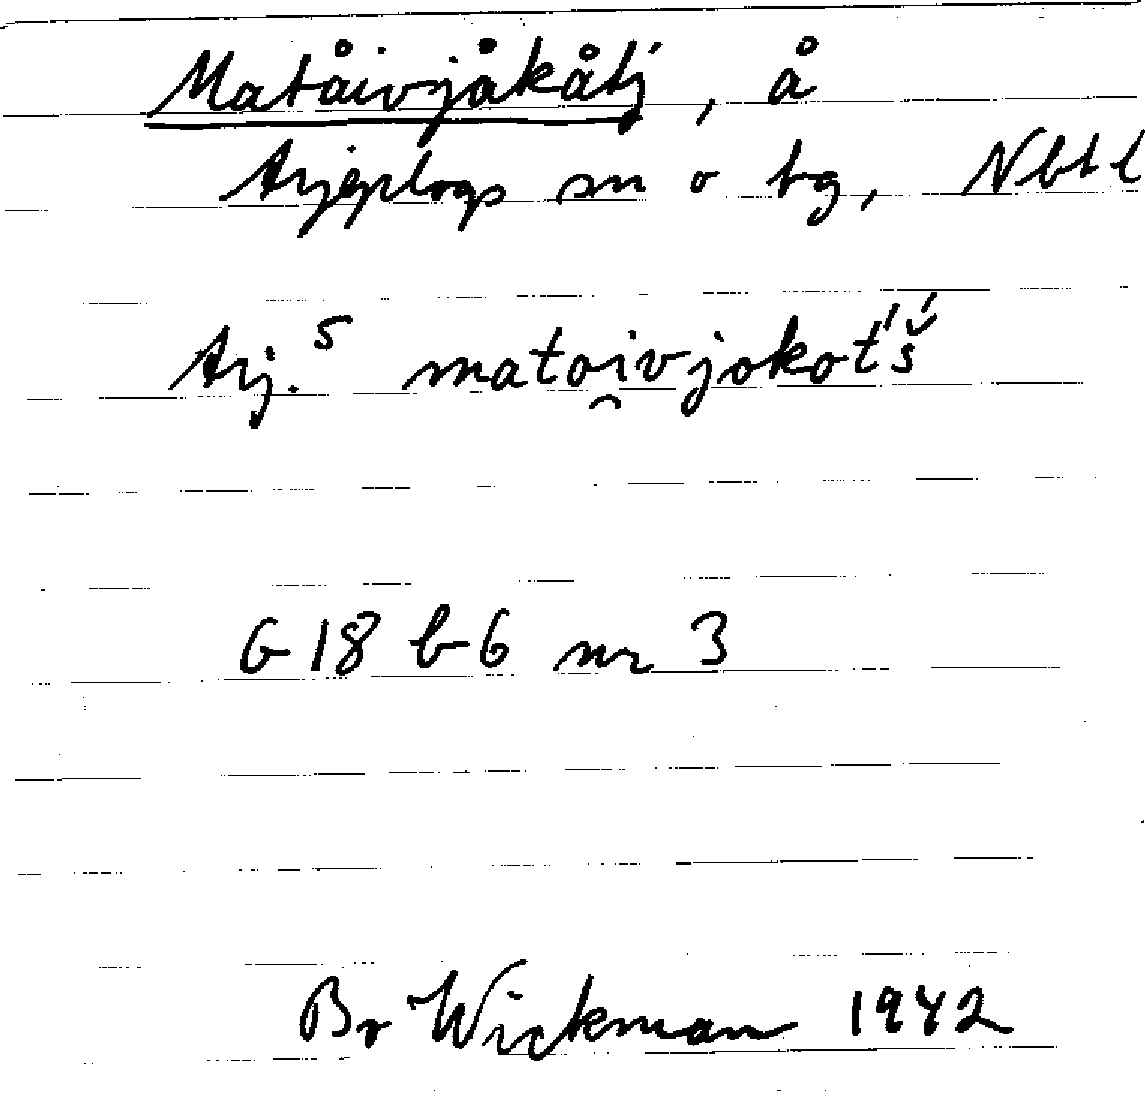 Matåivjåkåtj, å
Arjeplogs sn o tg, Nbtl
Arj. S matoi̯vjokot́š́
G 18 b 6 nr 3
Br Wickman 1942